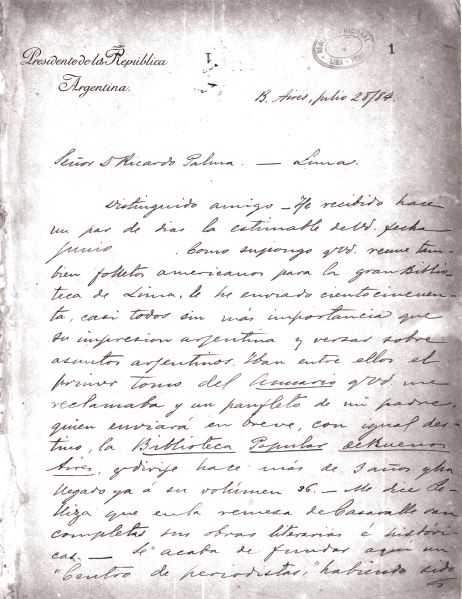 Presidente de la República
Argentina.
BIBLIOTECA NACIONAL
LIMA - PERU
1
B. Aires, julio 28/84.
Señor D Ricardo Palma. — Lima.
Distinguido amigo — He recibido hace
un par de dias la estimable de Vd. fecha
junio . Como supongo q Vd. reune tam-
bien folletos americanos para la gran Biblio-
teca de Lima, le he enviado ciento cincuen-
ta, casi todos sin más importancia que
su impresion argentina y versar sobre
asuntos argentinos. Van entre ellos el
primer tomo del Anuario q Vd me
reclamaba y un panfleto de mi padre,
quien enviará en breve, con igual des-
tino, la Biblioteca Popular de Buenos
Aires, q dirije hace más de 3 años y ha
llegado ya a su volúmen 36. — Me dice Pe-
lliza que en la remesa de Casavalle van
completas sus obras literarias é históri-
cas. — Se acaba de fundar aqui un
"Centro de periodistas," habiendo sido